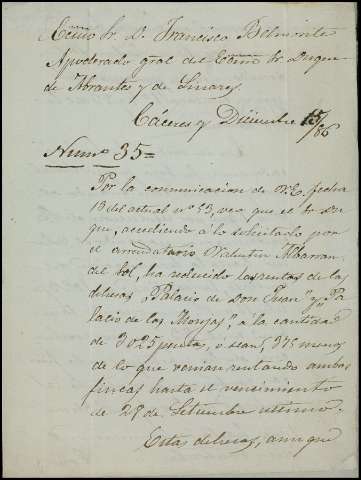 Excmo Sr. D. Francisco Belmonte
Apoderado gral del Excmo Sr Duque
de Abrantes y de Linares.
Cáceres y Diciembre 15/86
Num.o 35=
Por la comunicacion de V.E. fecha
13 del actual nº 53, veo que el Sr Du
que, accediendo á lo solicitado por
el arrendatario Valentin Albarran
del Sol, ha reducido las rentas de las
dehesas "Palacio de Don Juan" y "Pa
lacio de las Monjas", á la cantidad
de 3025 pesetas, ó sean, 375 menos
de lo que venian rentando ambas
fincas hasta el vencimiento
de 29 de Setiembre ultimo.
Estas dehesas, aunque